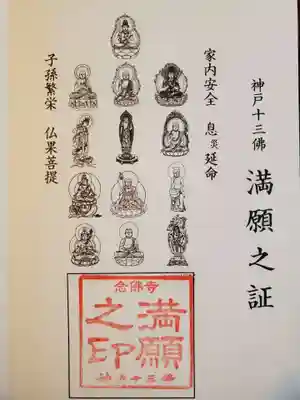 神戸十三佛
満願之証
家内安全 息災延命
子孫繁栄 仏果菩提
念佛寺
満願
之印